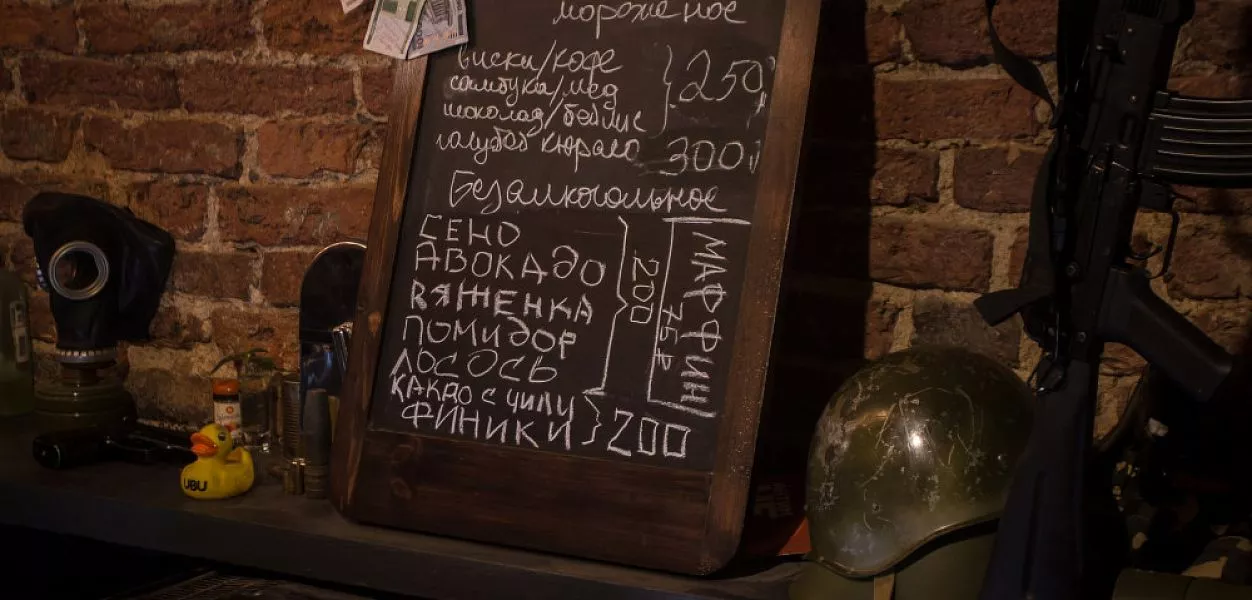 мороженое
виски/кофе
самбука/мед
шоколад/бейлис
250
голубой кюрасо 300
Безалкогольное
СЕНО
АВОКАДО
РЯЖЕНКА
ПОМИДОР
ЛОСОСЬ
200
КАКАО С ЧИЛИ
ФИНИКИ
200
МАФФИН
75 ₽
UBU